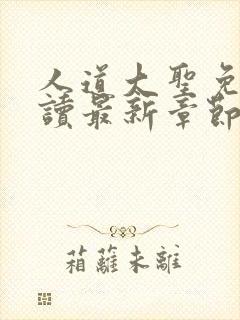 人道大聖免
讀最新章節
箱蘿未離